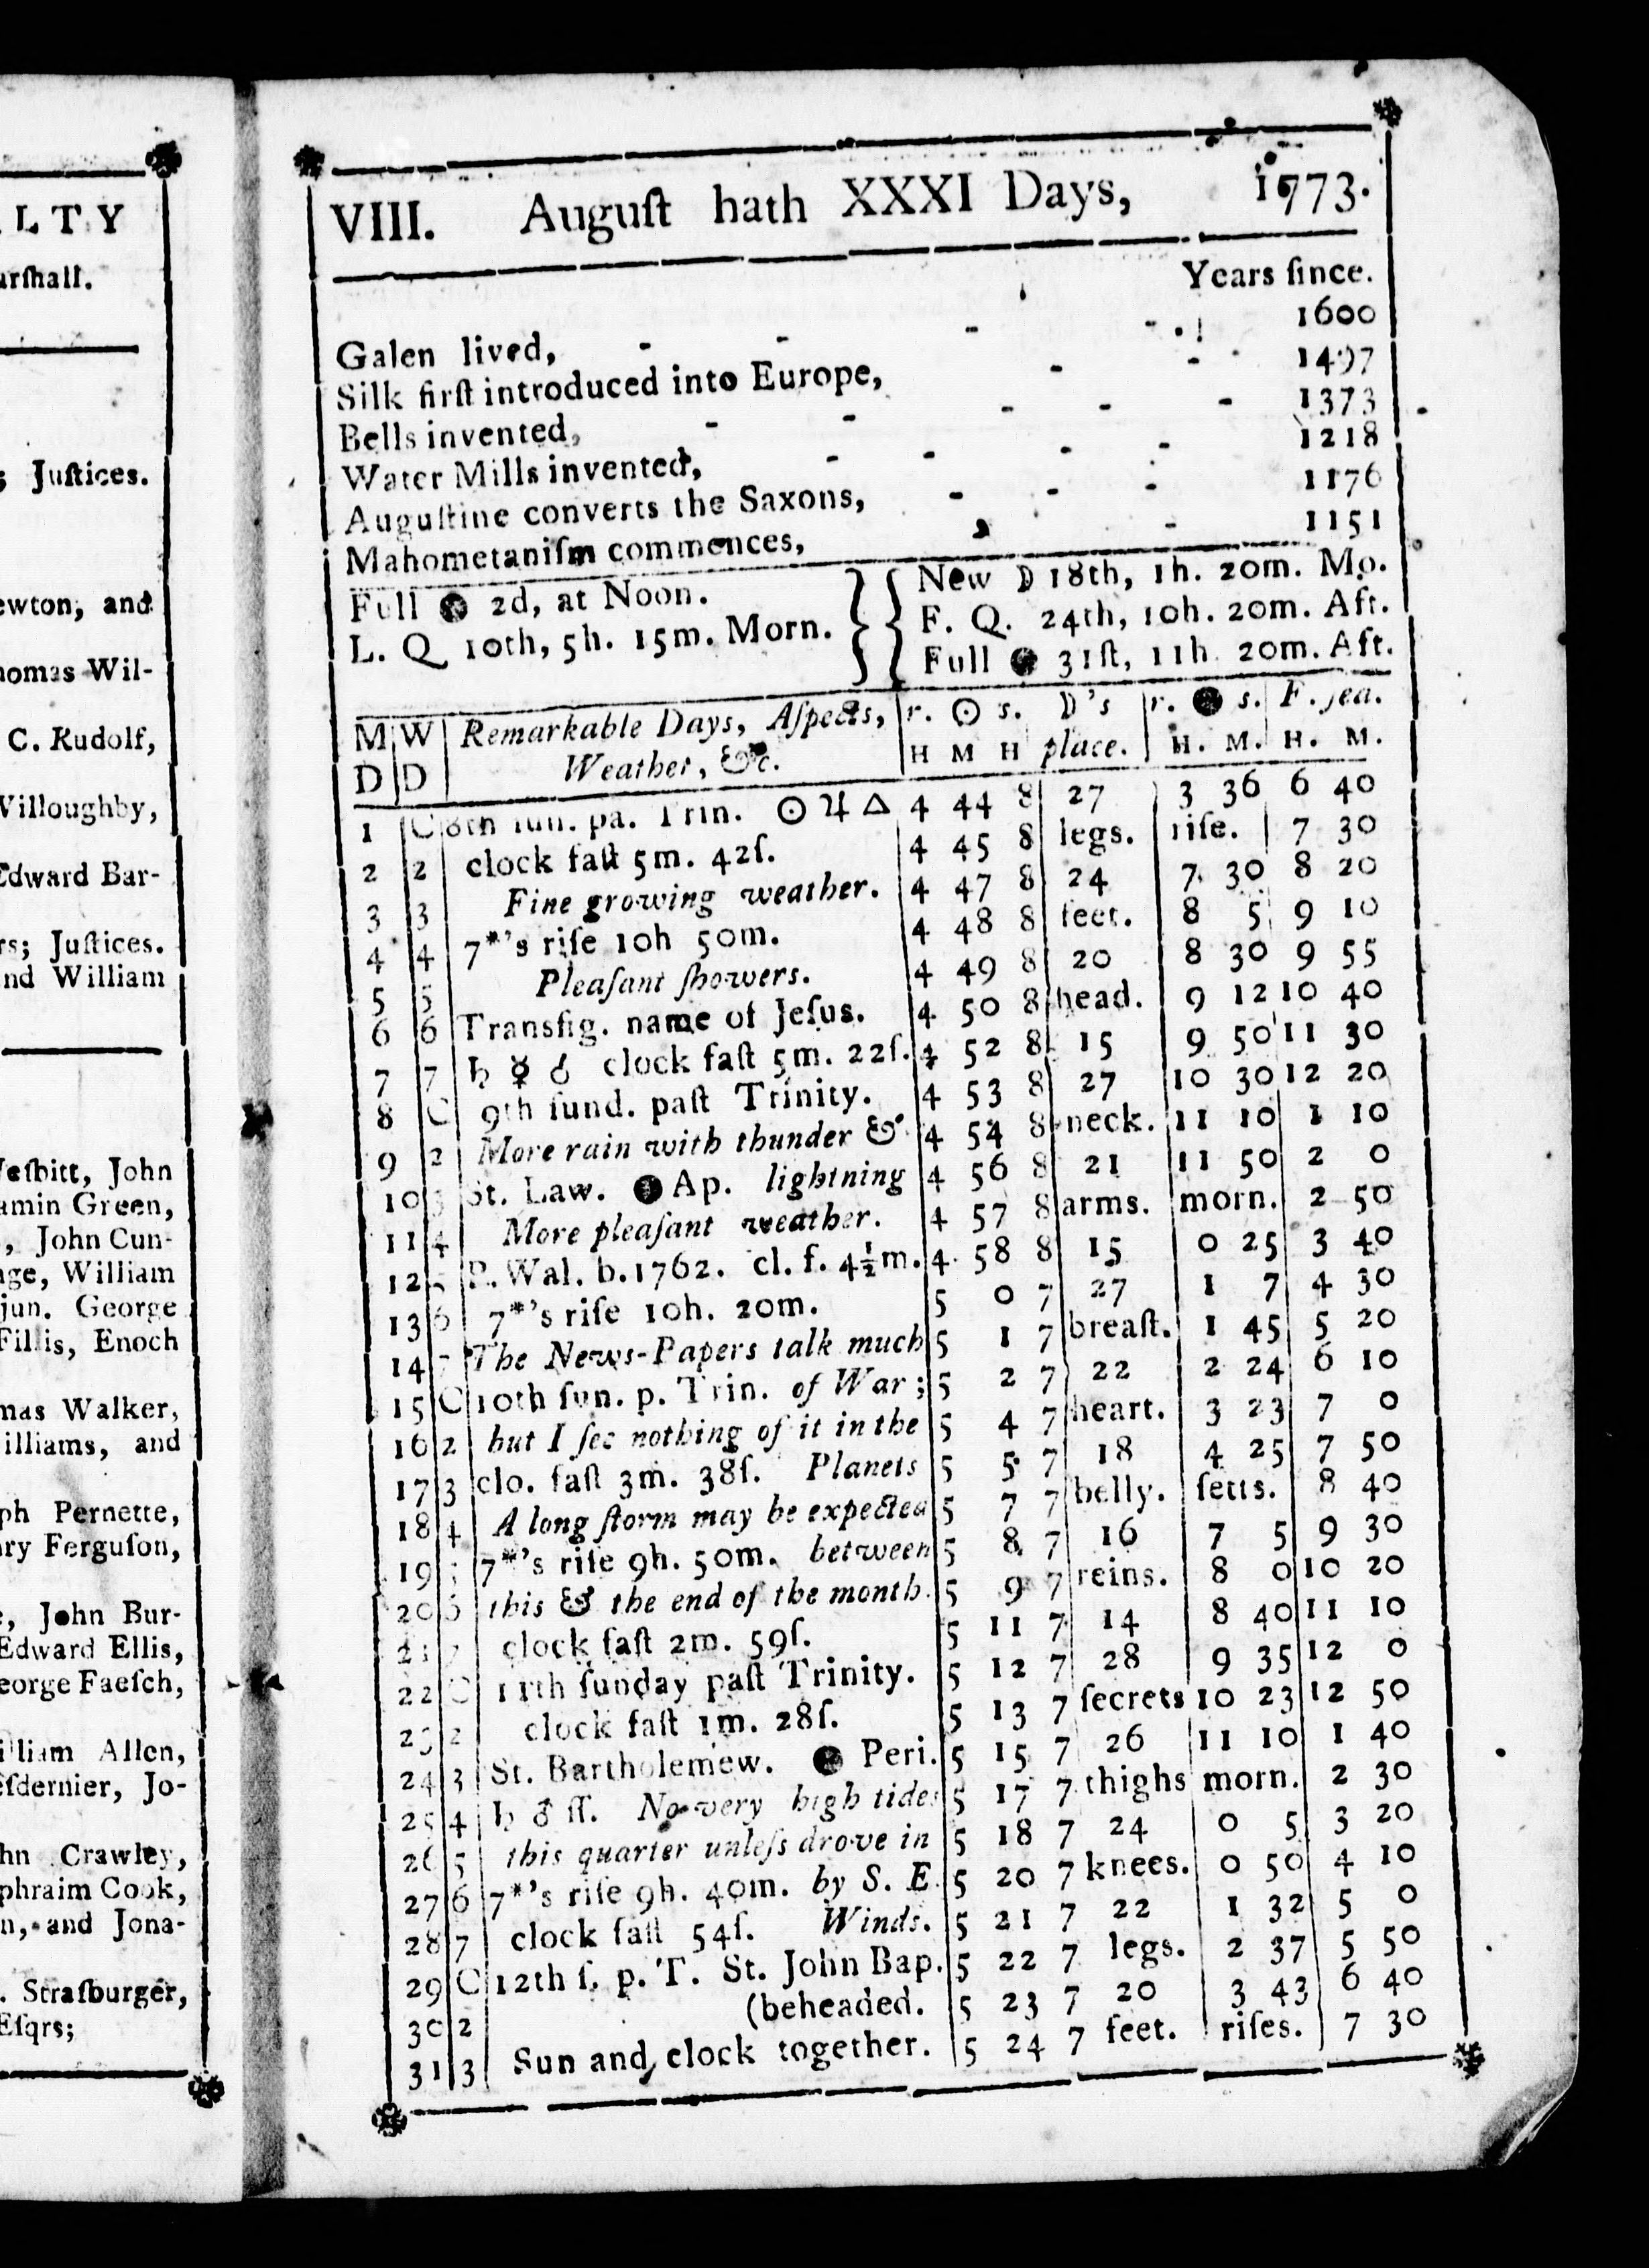 LTY
arſhall.
; Juſtices.
ewton, and
homas Wil-
C. Rudolf,
Willoughby,
Edward Bar-
rs; Juſtices.
and William
Neſbitt, John
amin Green,
, John Cun-
age, William
jun. George
Fillis, Enoch
mas Walker,
illiams, and
ph Pernette,
ary Ferguſon,
e, John Bur-
Edward Ellis,
eorge Faeſch,
illiam Allen,
eſdernier, Jo-
hn Crawley,
phraim Cook,
n, and Jona-
. Straſburger,
Eſqrs;
VIII. Auguſt hath XXXI Days, 1773.
Years ſince.
Galen lived, - - - - 1600
Silk firſt introduced into Europe, - - 1497
Bells invented, - - - - - 1373
Water Mills invented, - - - - 1218
Auguſtine converts the Saxons, - - - 1176
Mahometaniſm commences, - 1151
Full ● 2d, at Noon.
L. Q 10th, 5h. 15m. Morn.
New ☽ 18th, 1h. 20m. Mo.
F. Q. 24th, 10h. 20m. Aft.
Full ● 31ſt, 11h 20m. Aft.
M W Remarkable Days, Aſpects, r. ☉ s. ☽'s r. ● s. F. ſea.
D D Weather, &c. H M H place. H. M. H. M.
1 C 8th ſun. pa. Trin. ☉ ♃ △ 4 44 8 27 3 36 6 40
2 2 clock faſt 5m. 42ſ. 4 45 8 legs. riſe. 7 30
3 3 Fine growing weather. 4 47 8 24 7 30 8 20
4 4 7*'s riſe 10h 50m. 4 48 8 feet. 8 5 9 10
5 5 Pleaſant ſhowers. 4 49 8 20 8 30 9 55
6 6 Transfig. name of Jeſus. 4 50 8 head. 9 12 10 40
7 7 ♄ ☿ ☌ clock faſt 5m. 22ſ. 4 52 8 15 9 50 11 30
8 C 9th ſund. paſt Trinity. 4 53 8 27 10 30 12 20
9 2 More rain with thunder & 4 54 8 neck. 11 10 1 10
10 3 St. Law. ● Ap. lightning 4 56 8 21 11 50 2 0
11 4 More pleaſant weather. 4 57 8 arms. morn. 2 50
12 5 P. Wal. b. 1762. cl. f. 4½m. 4 58 8 15 0 25 3 40
13 6 7*'s riſe 10h. 20m. 5 0 7 27 1 7 4 30
14 7 The News-Papers talk much 5 1 7 breaſt. 1 45 5 20
15 C 10th ſun. p. Trin. of War; 5 2 7 22 2 24 6 10
16 2 but I ſee nothing of it in the 5 4 7 heart. 3 23 7 0
17 3 clo. faſt 3m. 38ſ. Planets 5 5 7 18 4 25 7 50
18 4 A long ſtorm may be expected 5 7 7 belly. ſetts. 8 40
19 5 7*'s riſe 9h. 50m. between 5 8 7 16 7 5 9 30
20 6 this & the end of the month. 5 9 7 reins. 8 0 10 20
21 7 clock faſt 2m. 59ſ. 5 11 7 14 8 40 11 10
22 C 11th ſunday paſt Trinity. 5 12 7 28 9 35 12 0
23 2 clock faſt 1m. 28ſ. 5 13 7 ſecrets 10 23 12 50
24 3 St. Bartholemew. ● Peri. 5 15 7 26 11 10 1 40
25 4 ♄ ♂ ſſ. No very high tides 5 17 7 thighs morn. 2 30
26 5 this quarter unleſs drove in 5 18 7 24 0 5 3 20
27 6 7*'s riſe 9h. 40m. by S. E. 5 20 7 knees. 0 50 4 10
28 7 clock faſt 54ſ. Winds. 5 21 7 22 1 32 5 0
29 C 12th ſ. p. T. St. John Bap. 5 22 7 legs. 2 37 5 50
30 2 (beheaded. 5 23 7 20 3 43 6 40
31 3 Sun and clock together. 5 24 7 feet. riſes. 7 30